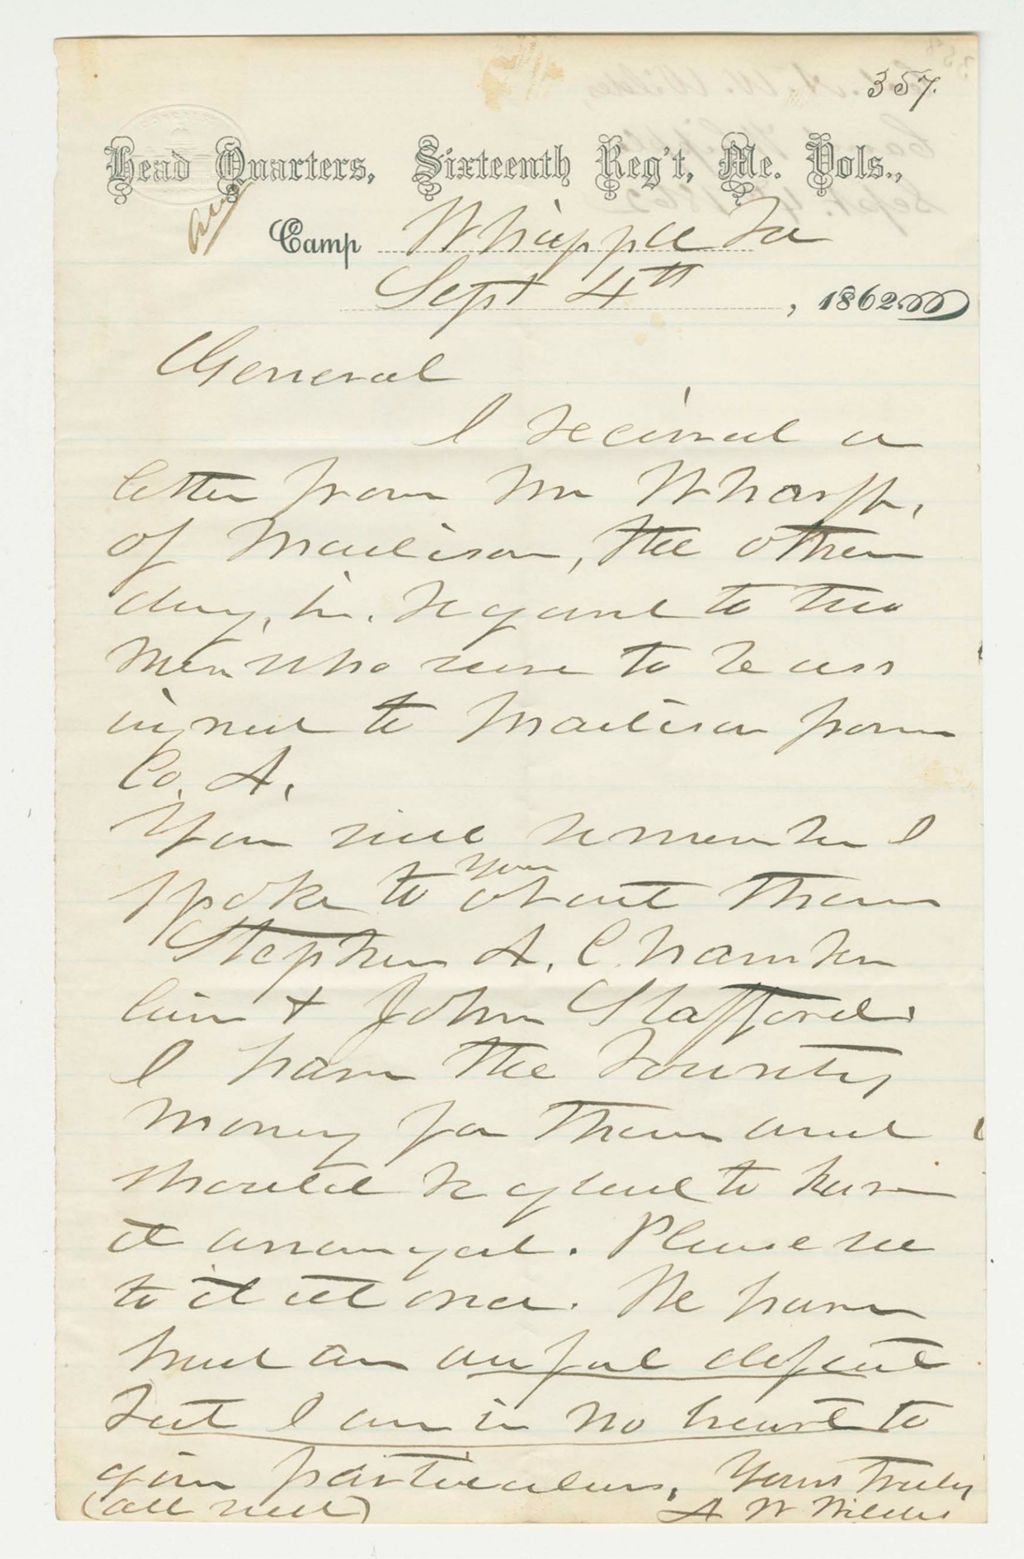 357.
Head Quarters, Sixteenth Reg't, Me. Vols.,
Camp Whipple Va
Sept 4th, 1862
General
I received a
letter from Mr Wharff,
of Madison, the other
day, in regard to two
men who were to be ass
igned to Madison from
Co. A.
You will remember I
spoke to you about them
Stephen A. Chamber
lin & John Stafford.
I have the bounty
money for them and
should be glad to have
it arranged. Please see
to it at once. We have
had an awful defeat
but I am in no heart to
give particulars, Yours Truly
(all well) A W Wildes